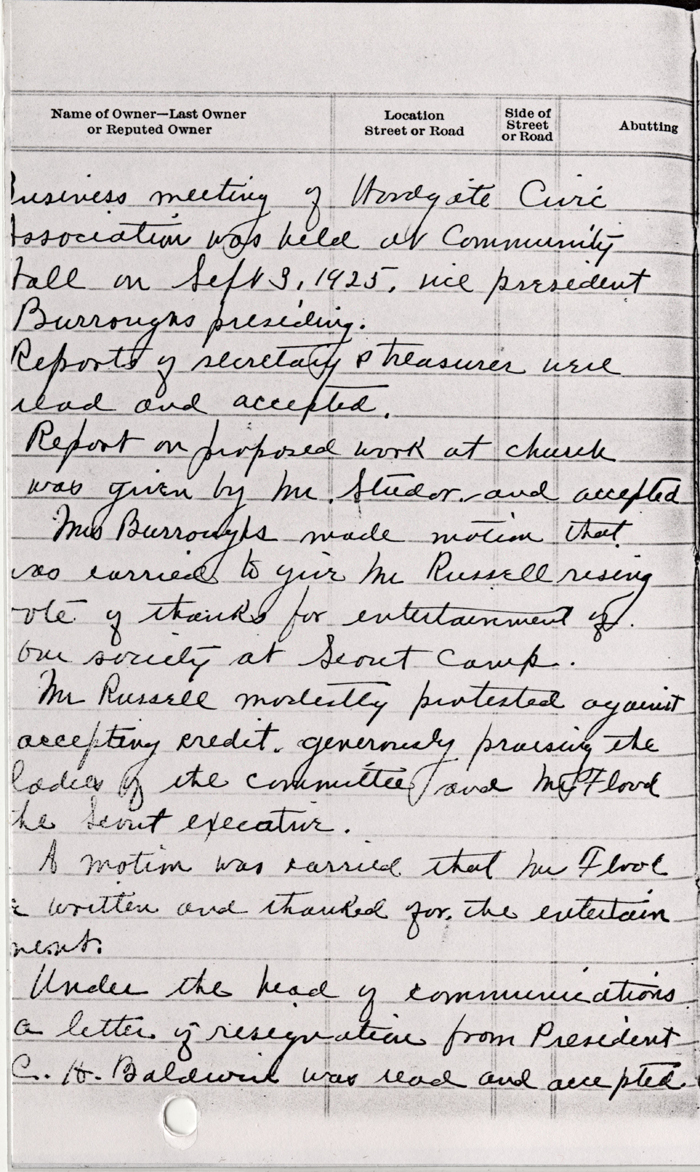 Name of Owner—Last Owner
or Reputed Owner
Location
Street or Road
Side of
Street
or Road
Abutting
Business meeting of Woodgate Civic
Association was held at Community
Hall on Sept 3, 1925, vice president
Burroughs presiding.
Reports of secretary & treasurer were
read and accepted.
Report on proposed work at church
was given by Mr. Studor, and accepted
Mrs Burroughs made motion that
was carried to give Mr Russell rising
vote of thanks for entertainment of
our society at Scout Camp.
Mr Russell modestly protested against
accepting credit, generously praising the
ladies of the committee and Mr Flood
the Scout executive.
A motion was carried that Mr Flood
be written and thanked for the entertain
ment.
Under the head of communications
a letter of resignation from President
C. H. Baldwin was read and accepted